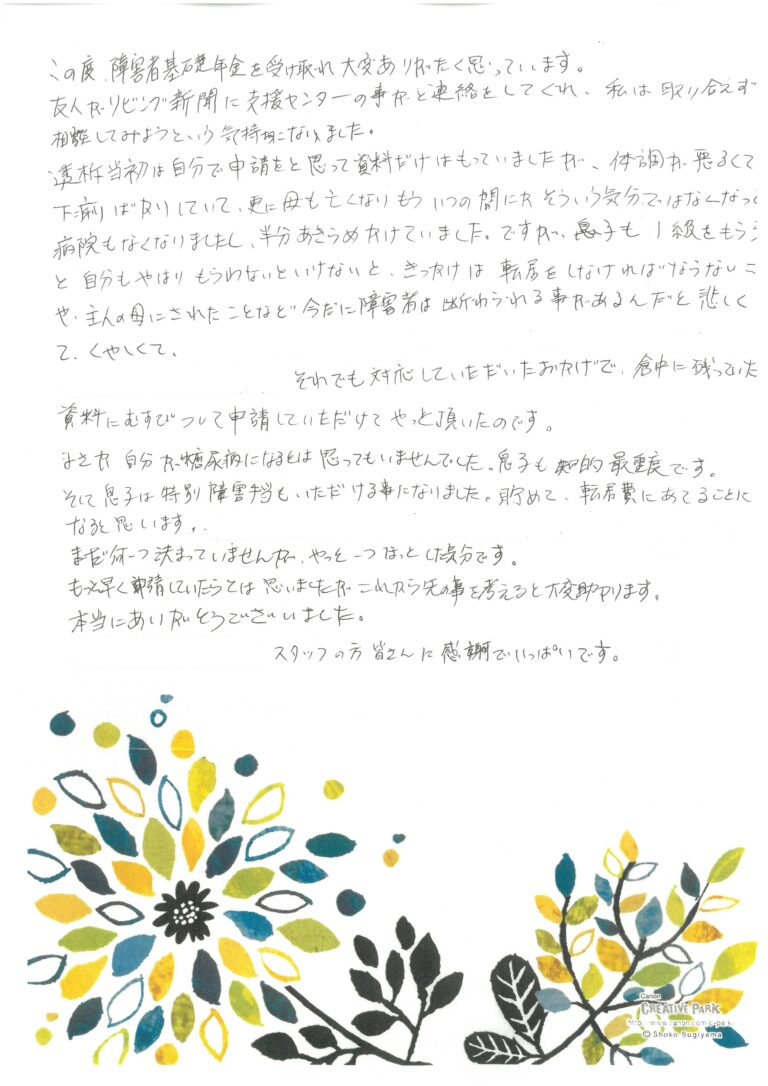 この度、障害者基礎年金を受け取れ大変ありがたく思っています。
友人がリビング新聞に支援センターの事がと連絡をしてくれ、私は取り合えず
相談してみようという気持になりました。
透析当初は自分で申請をと思って資料だけはもっていましたが、体調が悪るくて
下痢ばかりしていて、更に母も亡くなりもういつの間にかそういう気分ではなくなって
病院もなくなりましたし、半分あきらめかけていました。ですが、息子も1級をもらう
と自分もやはりもらわないといけないと、きっかけは転居をしなければならないこ
や、主人の母にされたことなど今だに障害者は断わられる事があるんだと悲しく
て、くやしくて。
それでも対応していただいたおかげで、倉中に残っていた
資料にむすびついて申請していただけてやっと頂いたのです。
まさか自分が糖尿病になるとは思ってもいませんでした。息子も知的最重度です。
そして息子は特別障害手当もいただける事になりました。貯めて、転居費にあてることに
なると思います。
まだ何一つ決まっていませんが、やっと一つほっとした気分です。
もっと早く申請していたらとは思いましたがこれから先の事を考えると大変助かります。
本当にありがとうございました。
スタッフの方皆さんに感謝でいっぱいです。
Canon
CREATIVE PARK
© Shoko Sugiyama